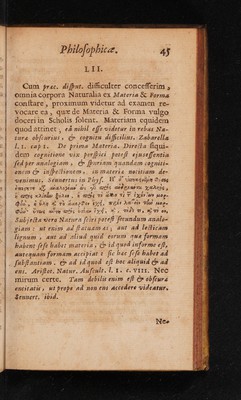 Philosophicæ. 45
LII.
Cum præc. disput. difficulter concesserim,
omnia corpora Naturalia ex Materia & Forma
constare, proximum videtur ad examen re-
vocare ea, quæ de Materia & Forma vulgo
doceri in Scholis solent. Materiam equidem
quod attinet, eâ nihil esse videtur in rebus Na-
turæ obscurius, & cognitu difficilius. Zabarella
l. 1. cap 1. De prima Materia. Directa siqui-
dem cognitione vix perspici potest ejus essentia
sed per analogiam, & spuriam quandam cogniti-
onem & inspectionem, in materiæ notitiam de-
venimus. Sennertus in Phys.
Subjecta vero Natura sciri potest secundum analo-
giam: ut enim ad statuam æs, aut ad lecticam
lignum, aut ad aliud quid eorum quæ formam
habent sese habet materia, & id quod informe est,
antequam formam accipiat: sic hæc sese habet ad
substantiam, & ad id quod est hoc aliquid & ad
ens. Aristot. Natur. Auscult. l. 1. c. VIII. Nec
mirum certe. Tam debilis enim est & obscura
entitatis, ut prope ad non ens accedere videatur.
Sennert. ibid.
Ne-